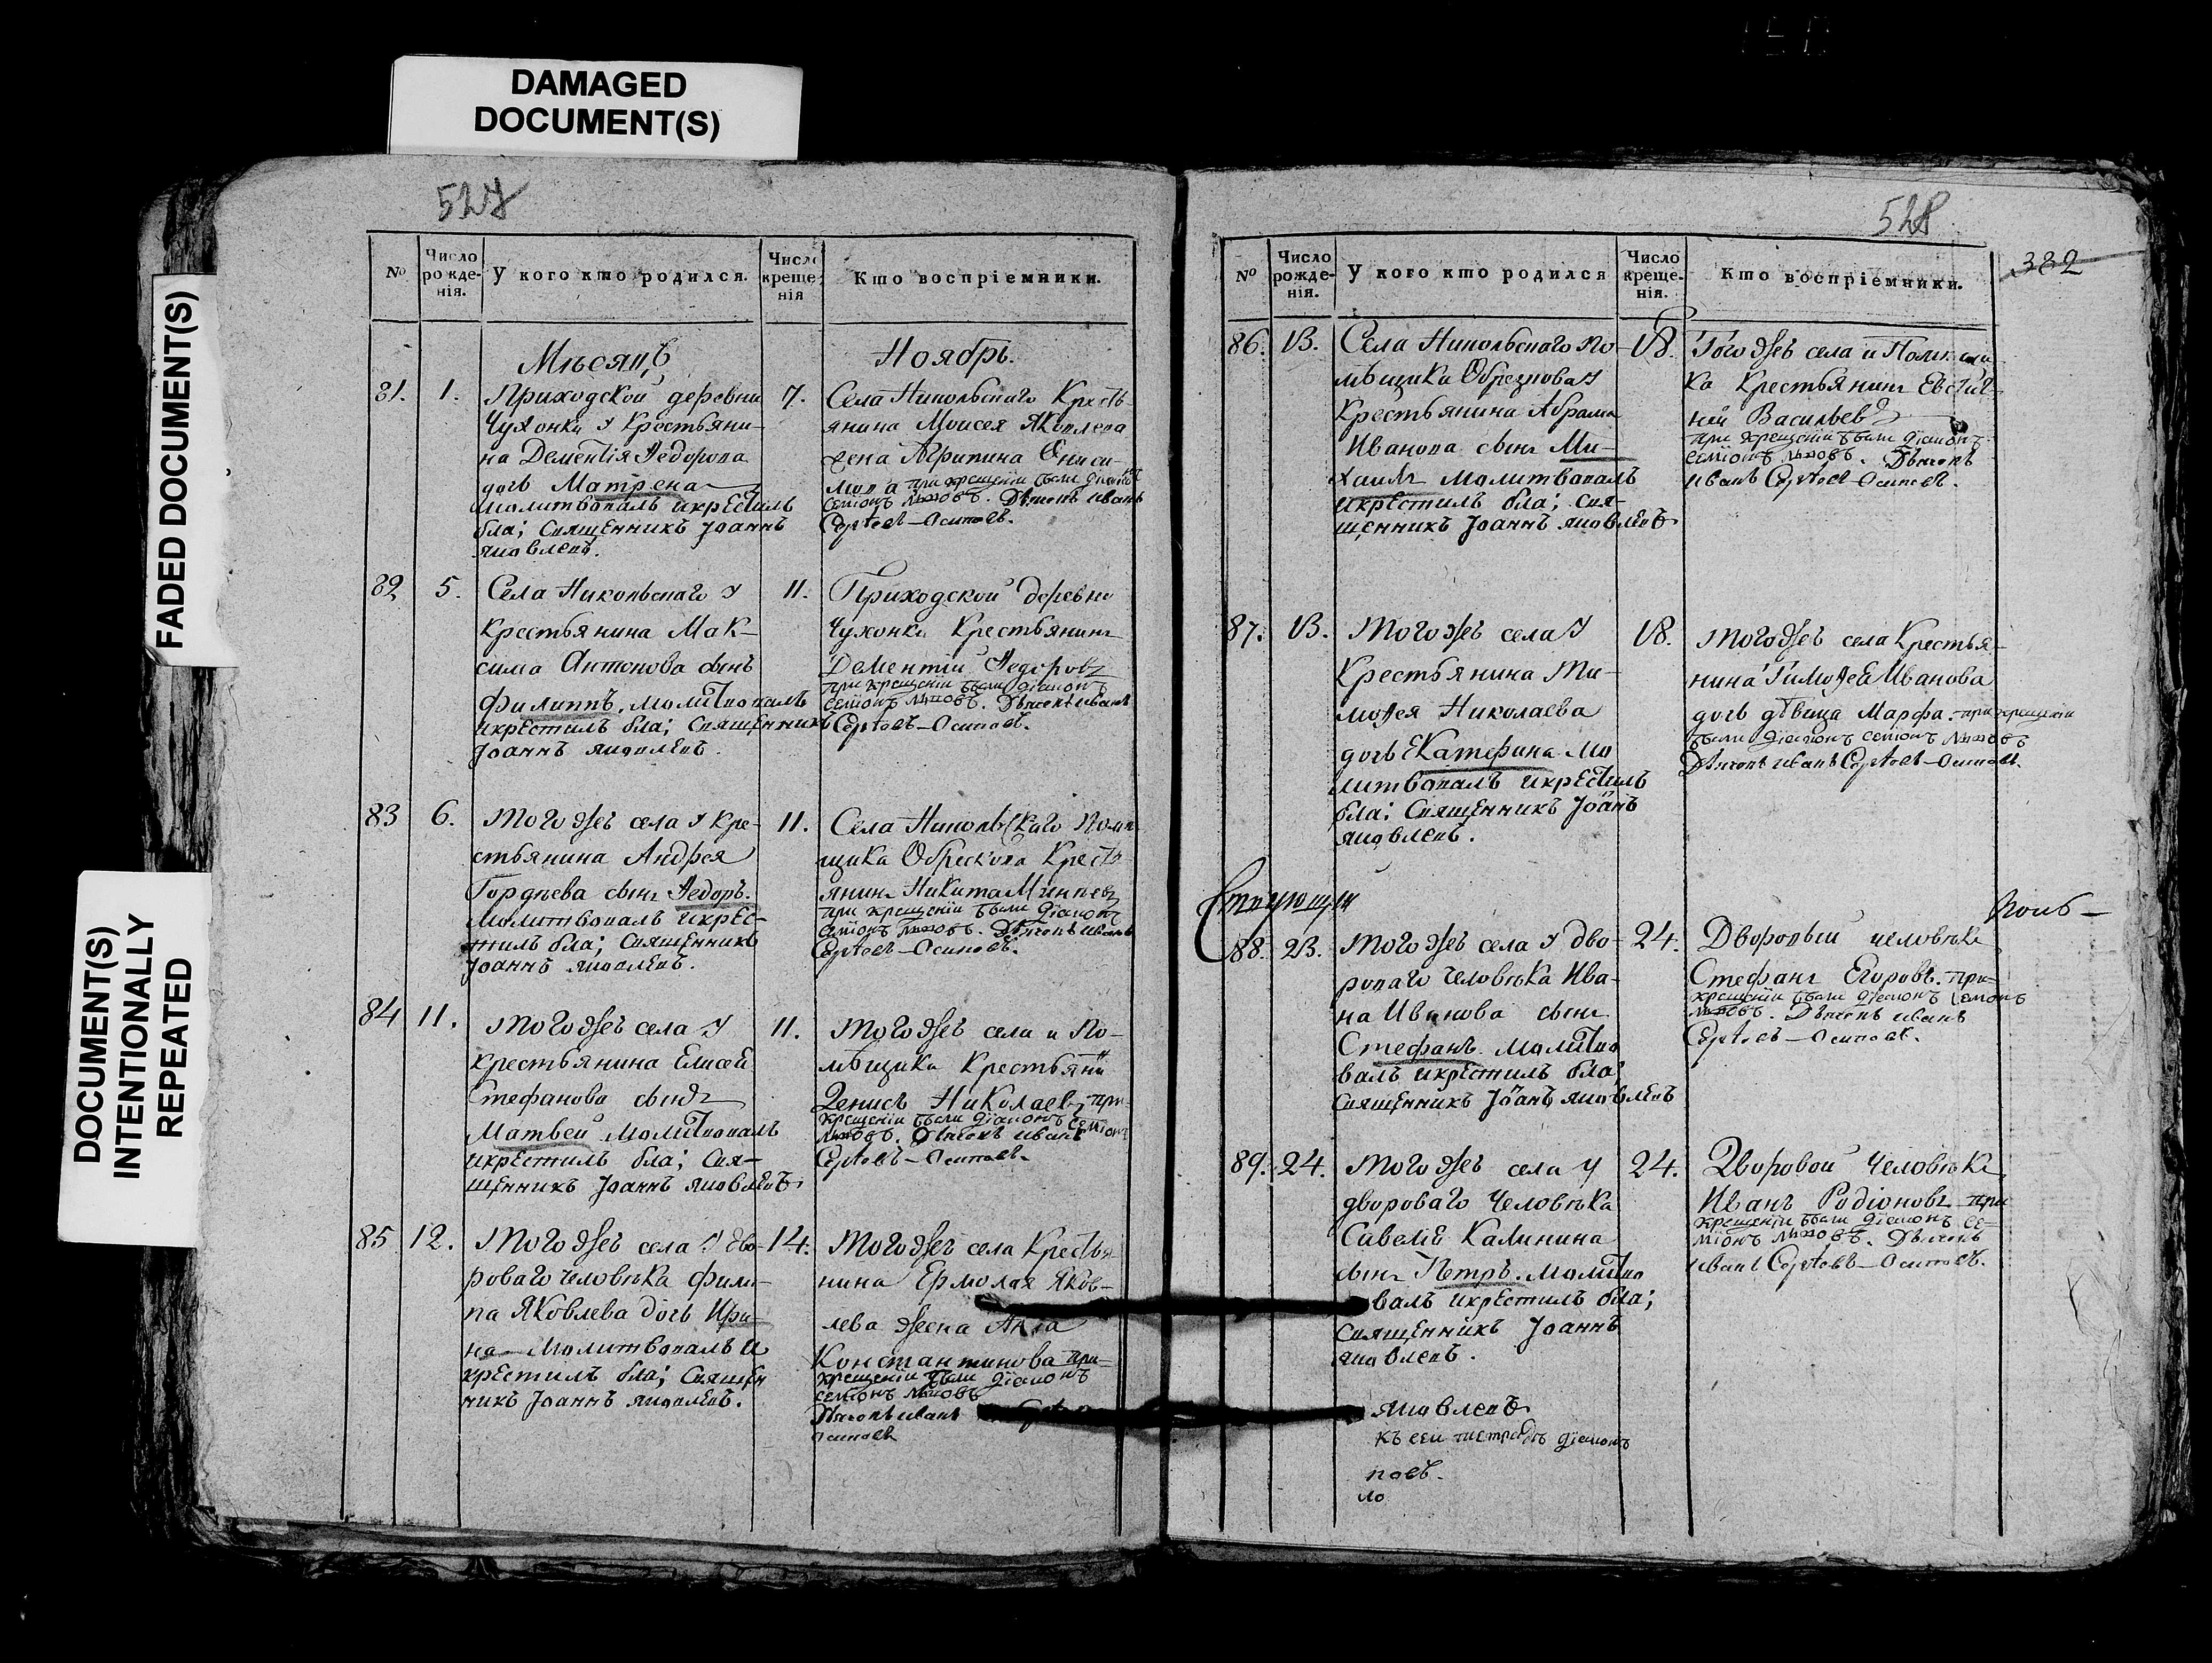 DAMAGED
DOCUMENT(S)
FADED DOCUMENT(S)
DOCUMENT(S)
INTENTIONALLY
REPEATED
527
№
Число рожде-нія.
У кого кто родился.
Число креще-нія
Кто воспріемники.
Мѣсяцъ Ноябрь.
81. 1.
Приходской деревни
Чухонки у Крестьяни-
на Дементія Ѳедорова
дочь Матрена
молитвовалъ икрестилъ
бла; Священникъ Іоаннъ
яковлевъ.
7.
Села Никольскаго Кресть-
янина Моисея Яковлева
жена Агрипина Ониси-
мова при крещеніи были діаконъ
семіонъ львовъ. Дьячокъ иванъ
Сергѣевъ Осиповъ.
82 5.
Села Никольскаго у
крестьянина Мак-
сима Антонова сынъ
Филиппъ. молитвовалъ
икрестилъ бла; Священникъ
Іоаннъ яковлевъ.
11.
Приходской деревни
Чухонки Крестьянинъ
Дементій Ѳедоровъ
при крещеніи были діаконъ
семіонъ львовъ. Дьячокъ иванъ
Осиповъ.
83 6.
Того же села у Кре-
стьянина Андрея
Гордѣева сынъ Ѳедоръ.
молитвовалъ икрес-
тилъ бла; Священникъ
Іоаннъ яковлевъ.
11.
Села Никольскаго Помѣ
щика Обрескова Кресть-
янинъ Никита
при крещеніи были діаконъ
семіонъ львовъ. Дьячокъ иванъ
Осиповъ.
84 11.
Того же села у
крестьянина Елисей
Стефанова сынъ
Матвей молитвовалъ
икрестилъ бла; Свя-
щенникъ Іоаннъ яковлевъ
11.
Того же села и По-
мѣщика Крестьянинъ
Денисъ Николаевъ при
крещеніи были діаконъ семіонъ
львовъ. Дьячокъ иванъ
Осиповъ.
85 12.
Того же села у дво-
роваго человѣка Фили-
па Яковлева дочь Ири-
на молитвовалъ и
крестилъ бла; Священ
никъ Іоаннъ яковлевъ.
14.
Того же села Крестья
нина Ермолая Яков-
лева жена Анна
Константинова при
крещеніи были діаконъ
семіонъ львовъ
Дьячокъ иванъ
осиповъ
528
382
№
Число рожде-нія.
У кого кто родился
Число креще-нія.
Кто воспріемники.
86. 13.
Села Никольскаго По-
мѣщика Обрезкова у
Крестьянина Абрама
Иванова сынъ Ми-
хаилъ молитвовалъ
икрестилъ бла; Свя-
щенникъ Іоаннъ яковлевъ
18.
Того же села и Помѣщи
ка Крестьянинъ Евсиг-
ней Васильевъ
при крещеніи были діаконъ
семіонъ львовъ. Дьячокъ
иванъ Осиповъ.
87. 13.
Того же села у
Крестьянина Ти-
моѳея Николаева
дочь Екатерина мо
литвовалъ икрестилъ
бла; Священникъ Іоанъ
яковлевъ.
18.
Того же села Крестья-
нина Тимоѳея Иванова
дочь дѣвица Марфа. при крещеніи
были діаконъ семіонъ львовъ
Дьячокъ иванъ Осиповъ.
88. 23.
Того же села у дво-
роваго человѣка Ива-
на Иванова сынъ
Стефанъ. молитво
валъ икрестилъ бла;
Священникъ Іоанъ яковлевъ
24.
Дворовый человѣкъ
Стефанъ Егоровъ. при-
крещеніи были діаконъ семіонъ
львовъ. Дьячокъ иванъ
Осиповъ.
89. 24.
Того же села у
двороваго человѣка
Савелія Калинина
сынъ Петръ. молитво
валъ икрестилъ бла;
Священникъ Іоаннъ
яковлевъ.
24.
Дворовой человѣкъ
Иванъ Родіоновъ при
крещеніи были діаконъ се-
міонъ львовъ. Дьячокъ
иванъ Осиповъ.
яковлевъ
къ сей тетрадѣ діаконъ
повъ.
ло